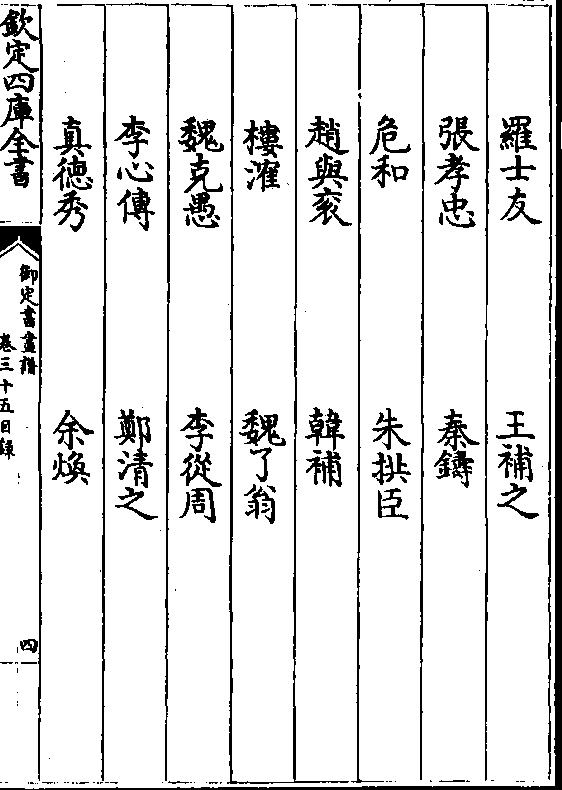 羅士友 王補之
張孝忠 秦鑄
危和 朱拱臣
趙與𥙿 韓補
樓灌 魏了翁
魏克愚 李從周
李心傳 鄭清之
真德秀 余煥
欽定四庫全書
御定書畫譜
卷三十五目錄
四